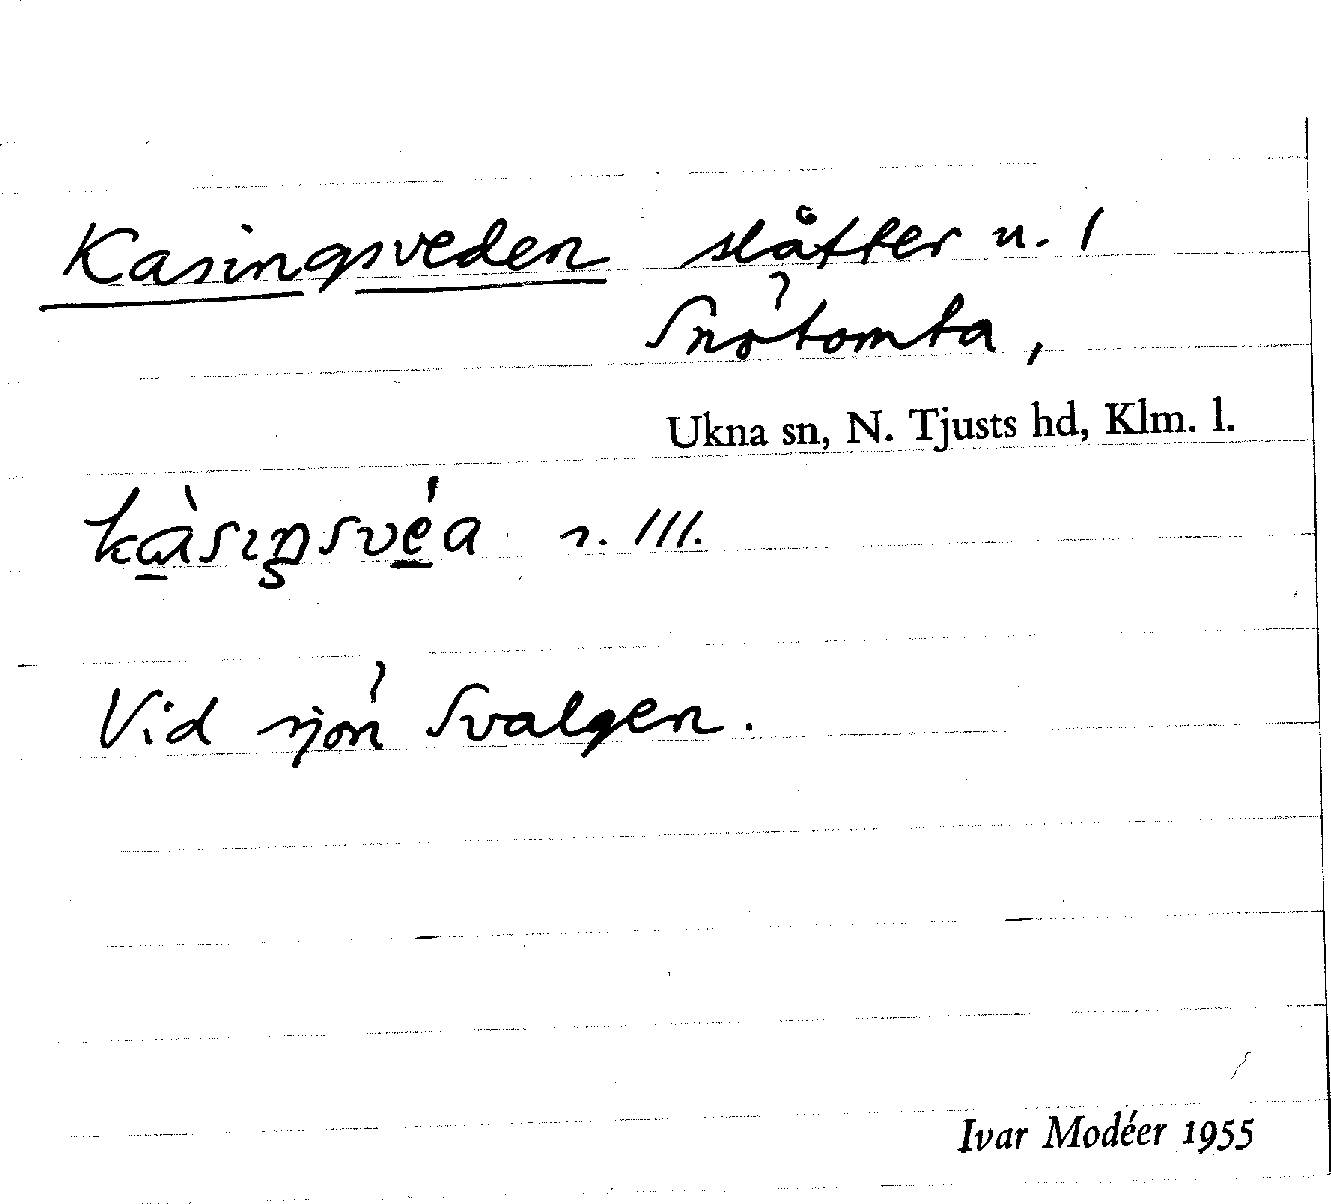 Kasingsveden slåtter u. /
Snötomta,
Ukna sn, N. Tjusts hd, Klm. l.
kàsiŋsvéa r. III.
Vid sjön Svalgen.
Ivar Modéer 1955